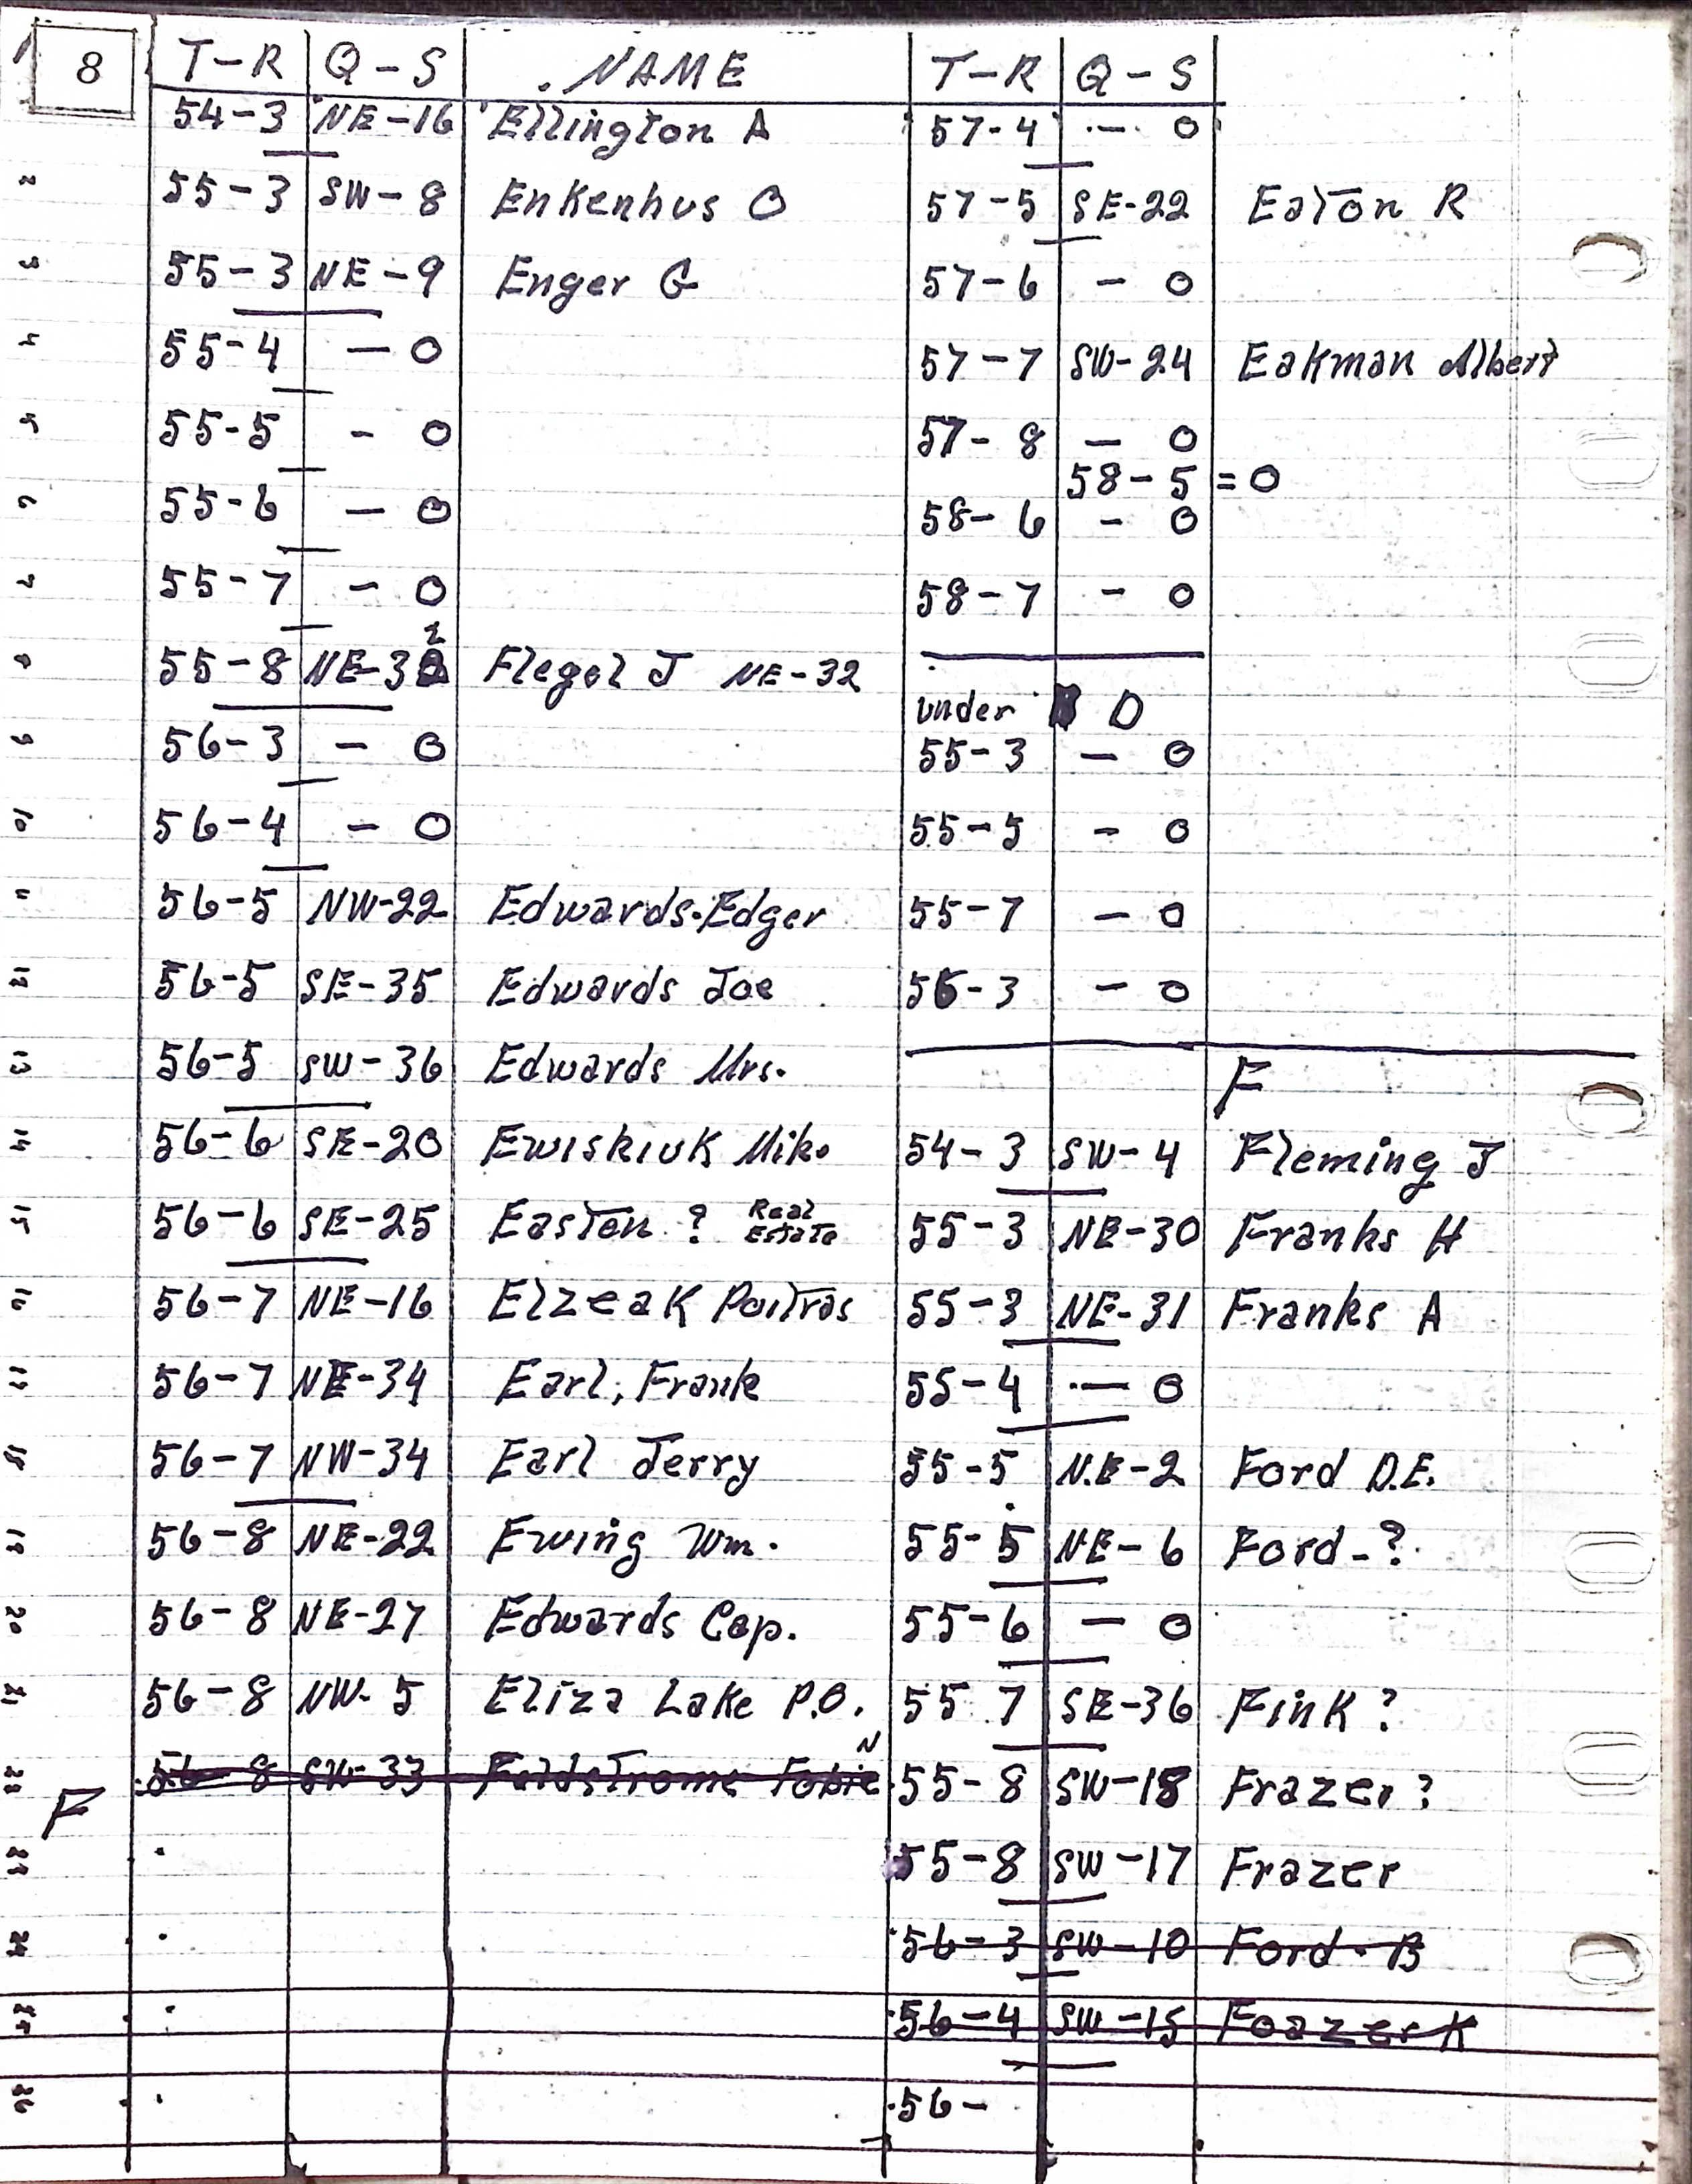 8
T-R Q-S NAME
54-3 NE-16 Ellington A
55-3 SW-8 Enkenhus O
55-3 NE-9 Enger G
55-4 - 0
55-5 - 0
55-6 - 0
55-7 - 0
2
55-8 NE-3 Flegel J NE-32
56-3 - 0
56-4 - 0
56-5 NW-22 Edwards-Edger
56-5 SE-35 Edwards Joe
56-5 SW-36 Edwards Mrs.
56-6 SE-20 Ewiskiuk Mike
56-6 SE-25 Easten ? Real Estate
56-7 NE-16 Elzeak Poitras
56-7 NE-34 Earl, Frank
56-7 NW-34 Earl Jerry
56-8 NE-22 Ewing Wm.
56-8 NE-27 Edwards Cap.
56-8 NW-5 Eliza Lake P.O.
N
56-8 SW-33 Feldstrome Tobie
F
T-R Q-S
57-4 - 0
57-5 SE-22 Eaton R
57-6 - 0
57-7 SW-24 Eakman Albert
57-8 - 0
58-5 = 0
58-6 - 0
58-7 - 0
under D
55-3 - 0
55-5 - 0
55-7 - 0
56-3 - 0
F
54-3 SW-4 Fleming J
55-3 NE-30 Franks H
55-3 NE-31 Franks A
55-4 - 0
55-5 N.E-2 Ford D.E.
55-5 NE-6 Ford-?
55-6 - 0
55 7 SE-36 Fink ?
55-8 SW-18 Frazer ?
55-8 SW-17 Frazer
56-3 SW-10 Ford B
56-4 SW-15 Foazer K
56-
1
2
3
4
5
6
7
8
9
10
11
12
13
14
15
16
17
18
19
20
21
22
23
24
25
26